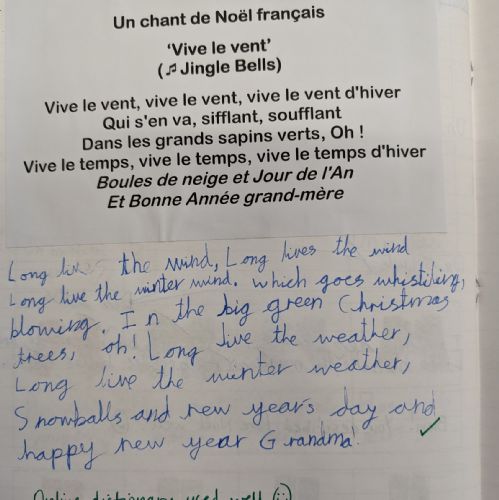 Un chant de Noël français
‘Vive le vent’
(♫ Jingle Bells)
Vive le vent, vive le vent, vive le vent d'hiver
Qui s'en va, sifflant, soufflant
Dans les grands sapins verts, Oh !
Vive le temps, vive le temps, vive le temps d'hiver
Boules de neige et Jour de l'An
Et Bonne Année grand-mère
Long the wind, Long lives the wind
Long live the winter wind. which goes whistiling,
blowing. In the big green Christmas
trees, oh! Long live the weather,
Long live the winter weather,
Snowballs and new year's day and
happy new year Grandma!
used well